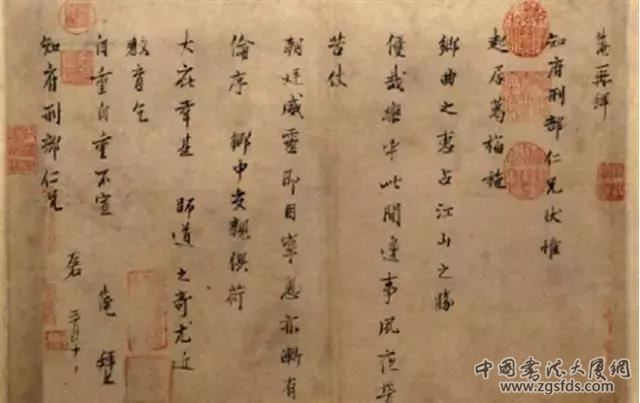 淹再拜
知府刑部仁兄伏惟
起居萬福施
鄉曲之惠占江山之勝
優哉樂乎此間邊事夙夜勞
苦仗
朝廷威靈即目寧息亦漸有
倫序鄉中交親俱荷
大庇幸甚 師道之奇尤近
教育乞
自重自重不宣 淹拜上
知府刑部仁兄
三月十日
中国书法大厦网
www.zgsfds.com